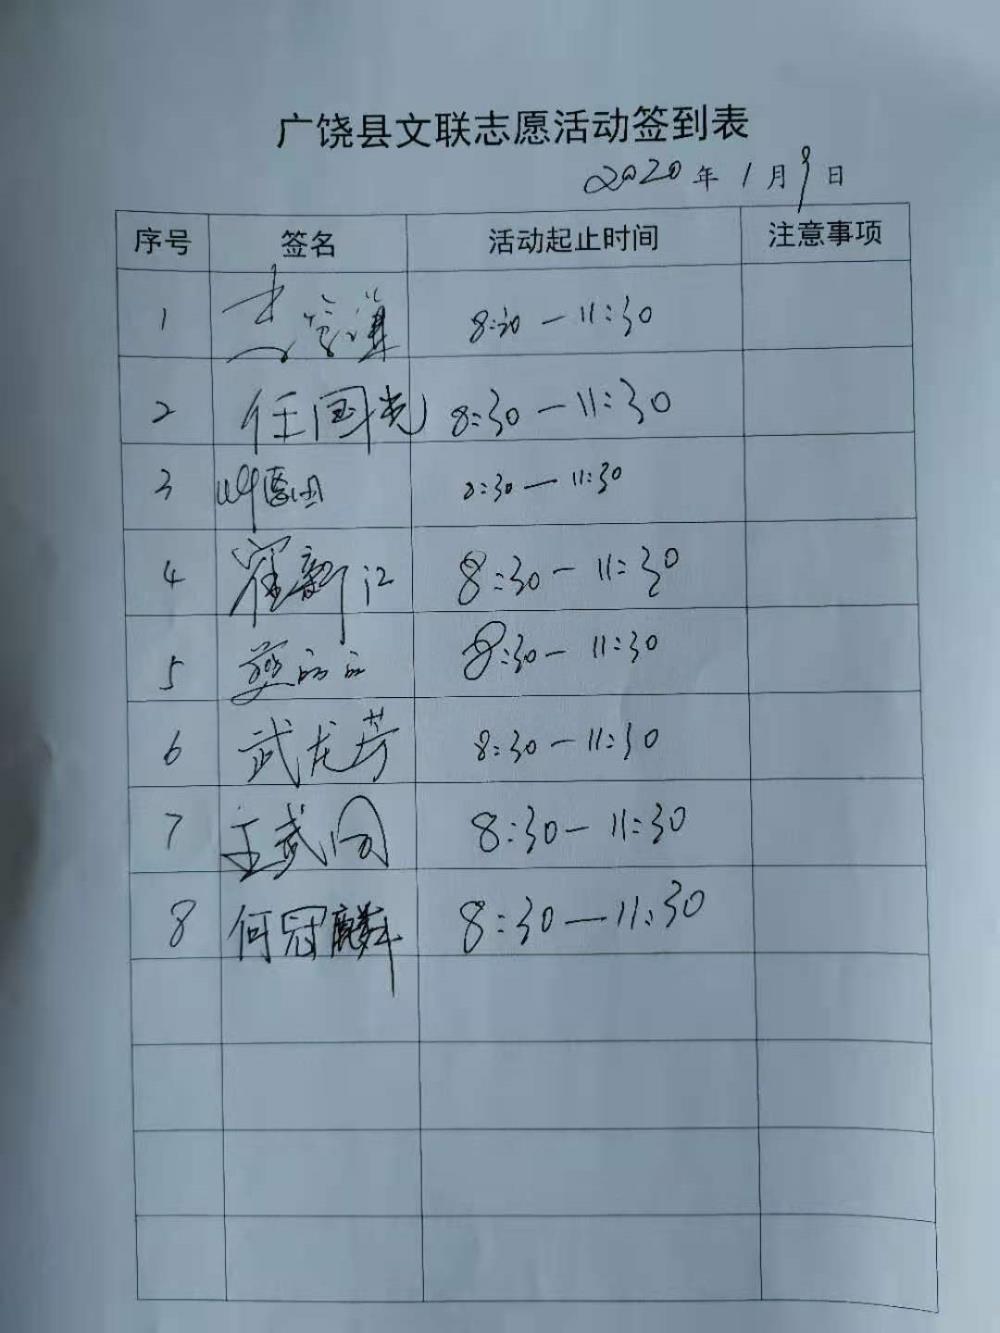 广饶县文联志愿活动签到表
2020年1月9日
序号 签名 活动起止时间 注意事项
1 8:30—11:30
2 任国光 8:30—11:30
3 8:30—11:30
4 崔新江 8:30—11:30
5 8:30—11:30
6 武龙芳 8:30—11:30
7 王武同 8:30—11:30
8 何冠麟 8:30—11:30